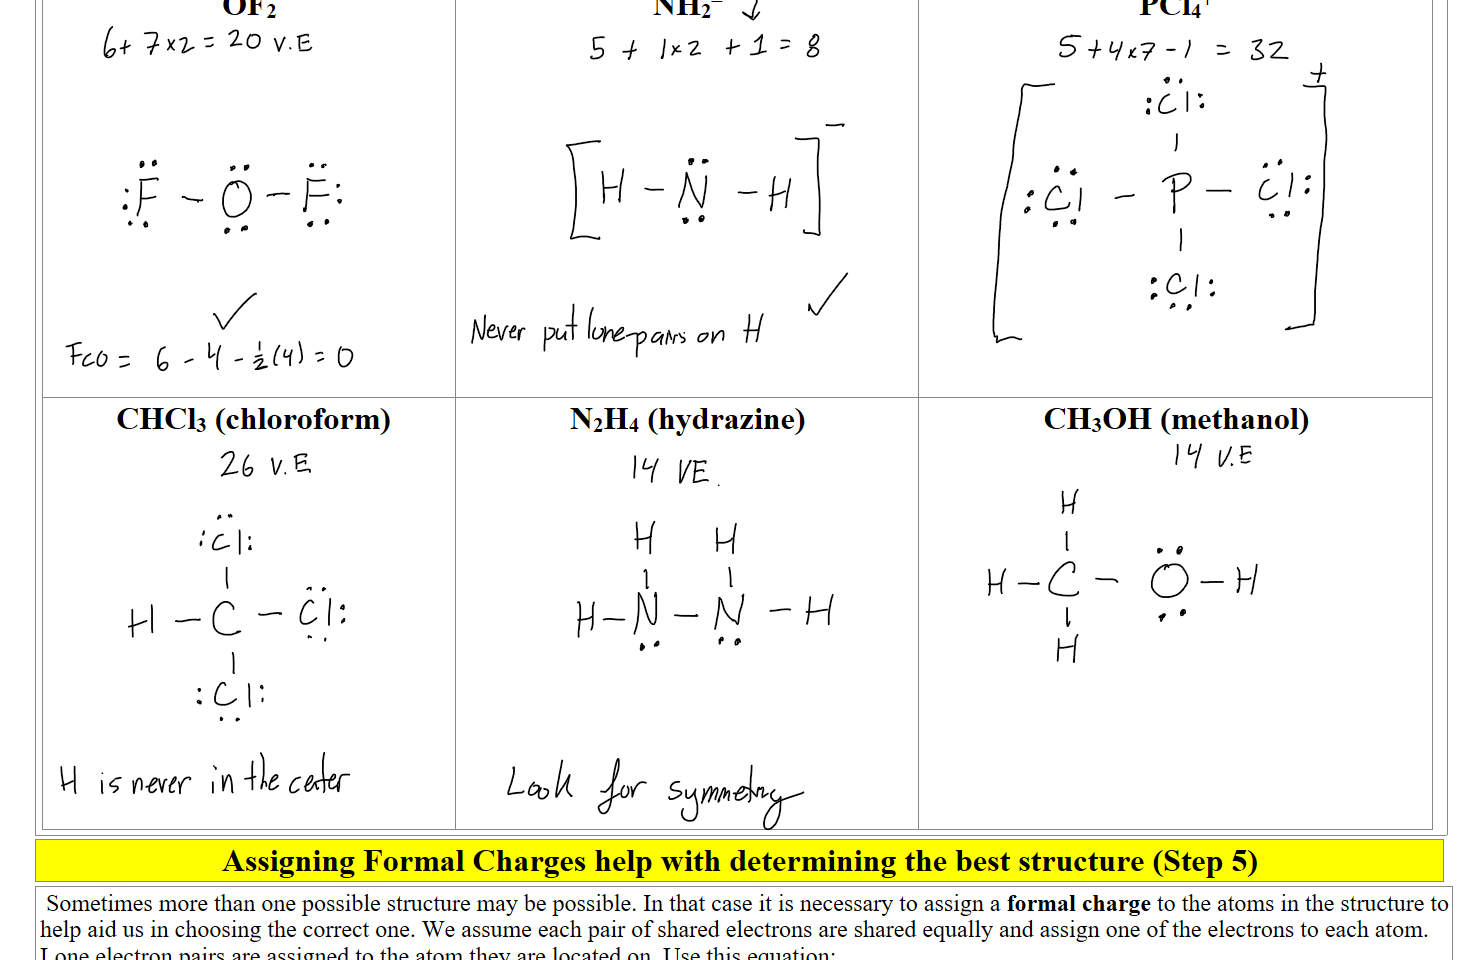 OF2
6+ 7x2 = 20 V.E
:F - O - F:
✓
FCO = 6 - 4 - 1/2(4) = 0
NH2⁻ ↓
5 + 1x2 + 1 = 8
[H - N - H]⁻
Never put lone pairs on H ✓
PCl4⁺
5+4x7-1 = 32
+
:Cl:
:Cl - P - Cl:
:Cl:
CHCl3 (chloroform)
26 V.E
:Cl:
H - C - Cl:
:Cl:
H is never in the ceter
N2H4 (hydrazine)
14 VE.
H H
H - N - N - H
Look for symmetry
CH3OH (methanol)
14 V.E
H
H - C - O - H
H
Assigning Formal Charges help with determining the best structure (Step 5)
Sometimes more than one possible structure may be possible. In that case it is necessary to assign a formal charge to the atoms in the structure to
help aid us in choosing the correct one. We assume each pair of shared electrons are shared equally and assign one of the electrons to each atom.
Lone electron pairs are assigned to the atom they are located on. Use this equation: